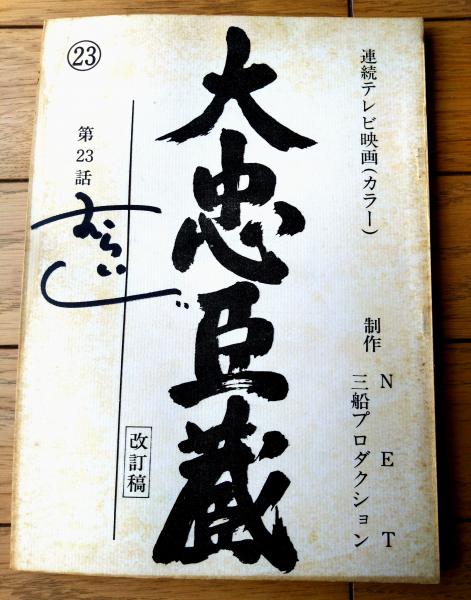 連続テレビ映画(カラー)
制作 NET
三船プロダクション
大忠臣蔵
改訂稿
㉓
第23話